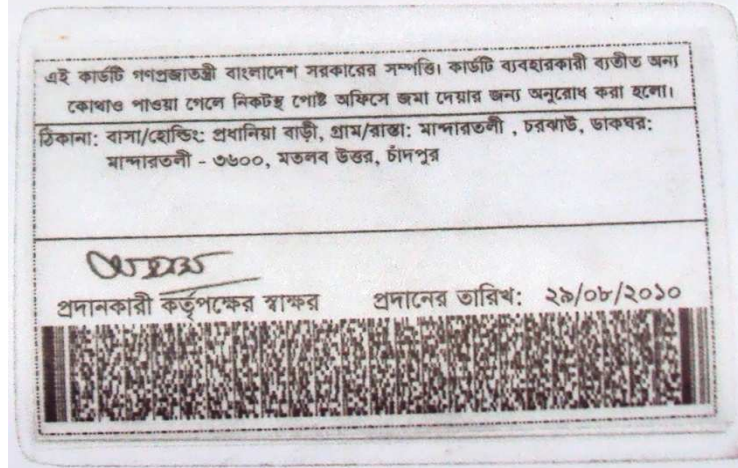 এই কার্ডটি গণপ্রজাতন্ত্রী বাংলাদেশ সরকারের সম্পত্তি। কার্ডটি ব্যবহারকারী ব্যতীত অন্য
কোথাও পাওয়া গেলে নিকটস্থ পোষ্ট অফিসে জমা দেয়ার জন্য অনুরোধ করা হলো।
ঠিকানা: বাসা/হোল্ডিং: প্রধানিয়া বাড়ী, গ্রাম/রাস্তা: মান্দারতলী , চরঝাউ, ডাকঘর:
মান্দারতলী - ৩৬০০, মতলব উত্তর, চাঁদপুর
প্রদানকারী কর্তৃপক্ষের স্বাক্ষর প্রদানের তারিখ: ২৯/০৮/২০১০